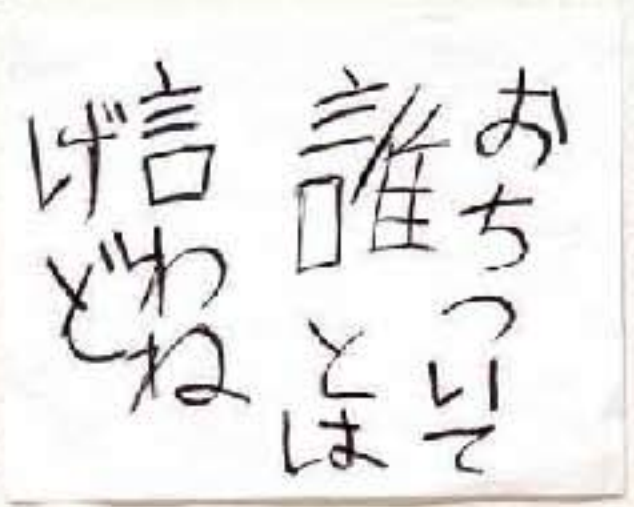 おちついて
誰とは
言わね
げど